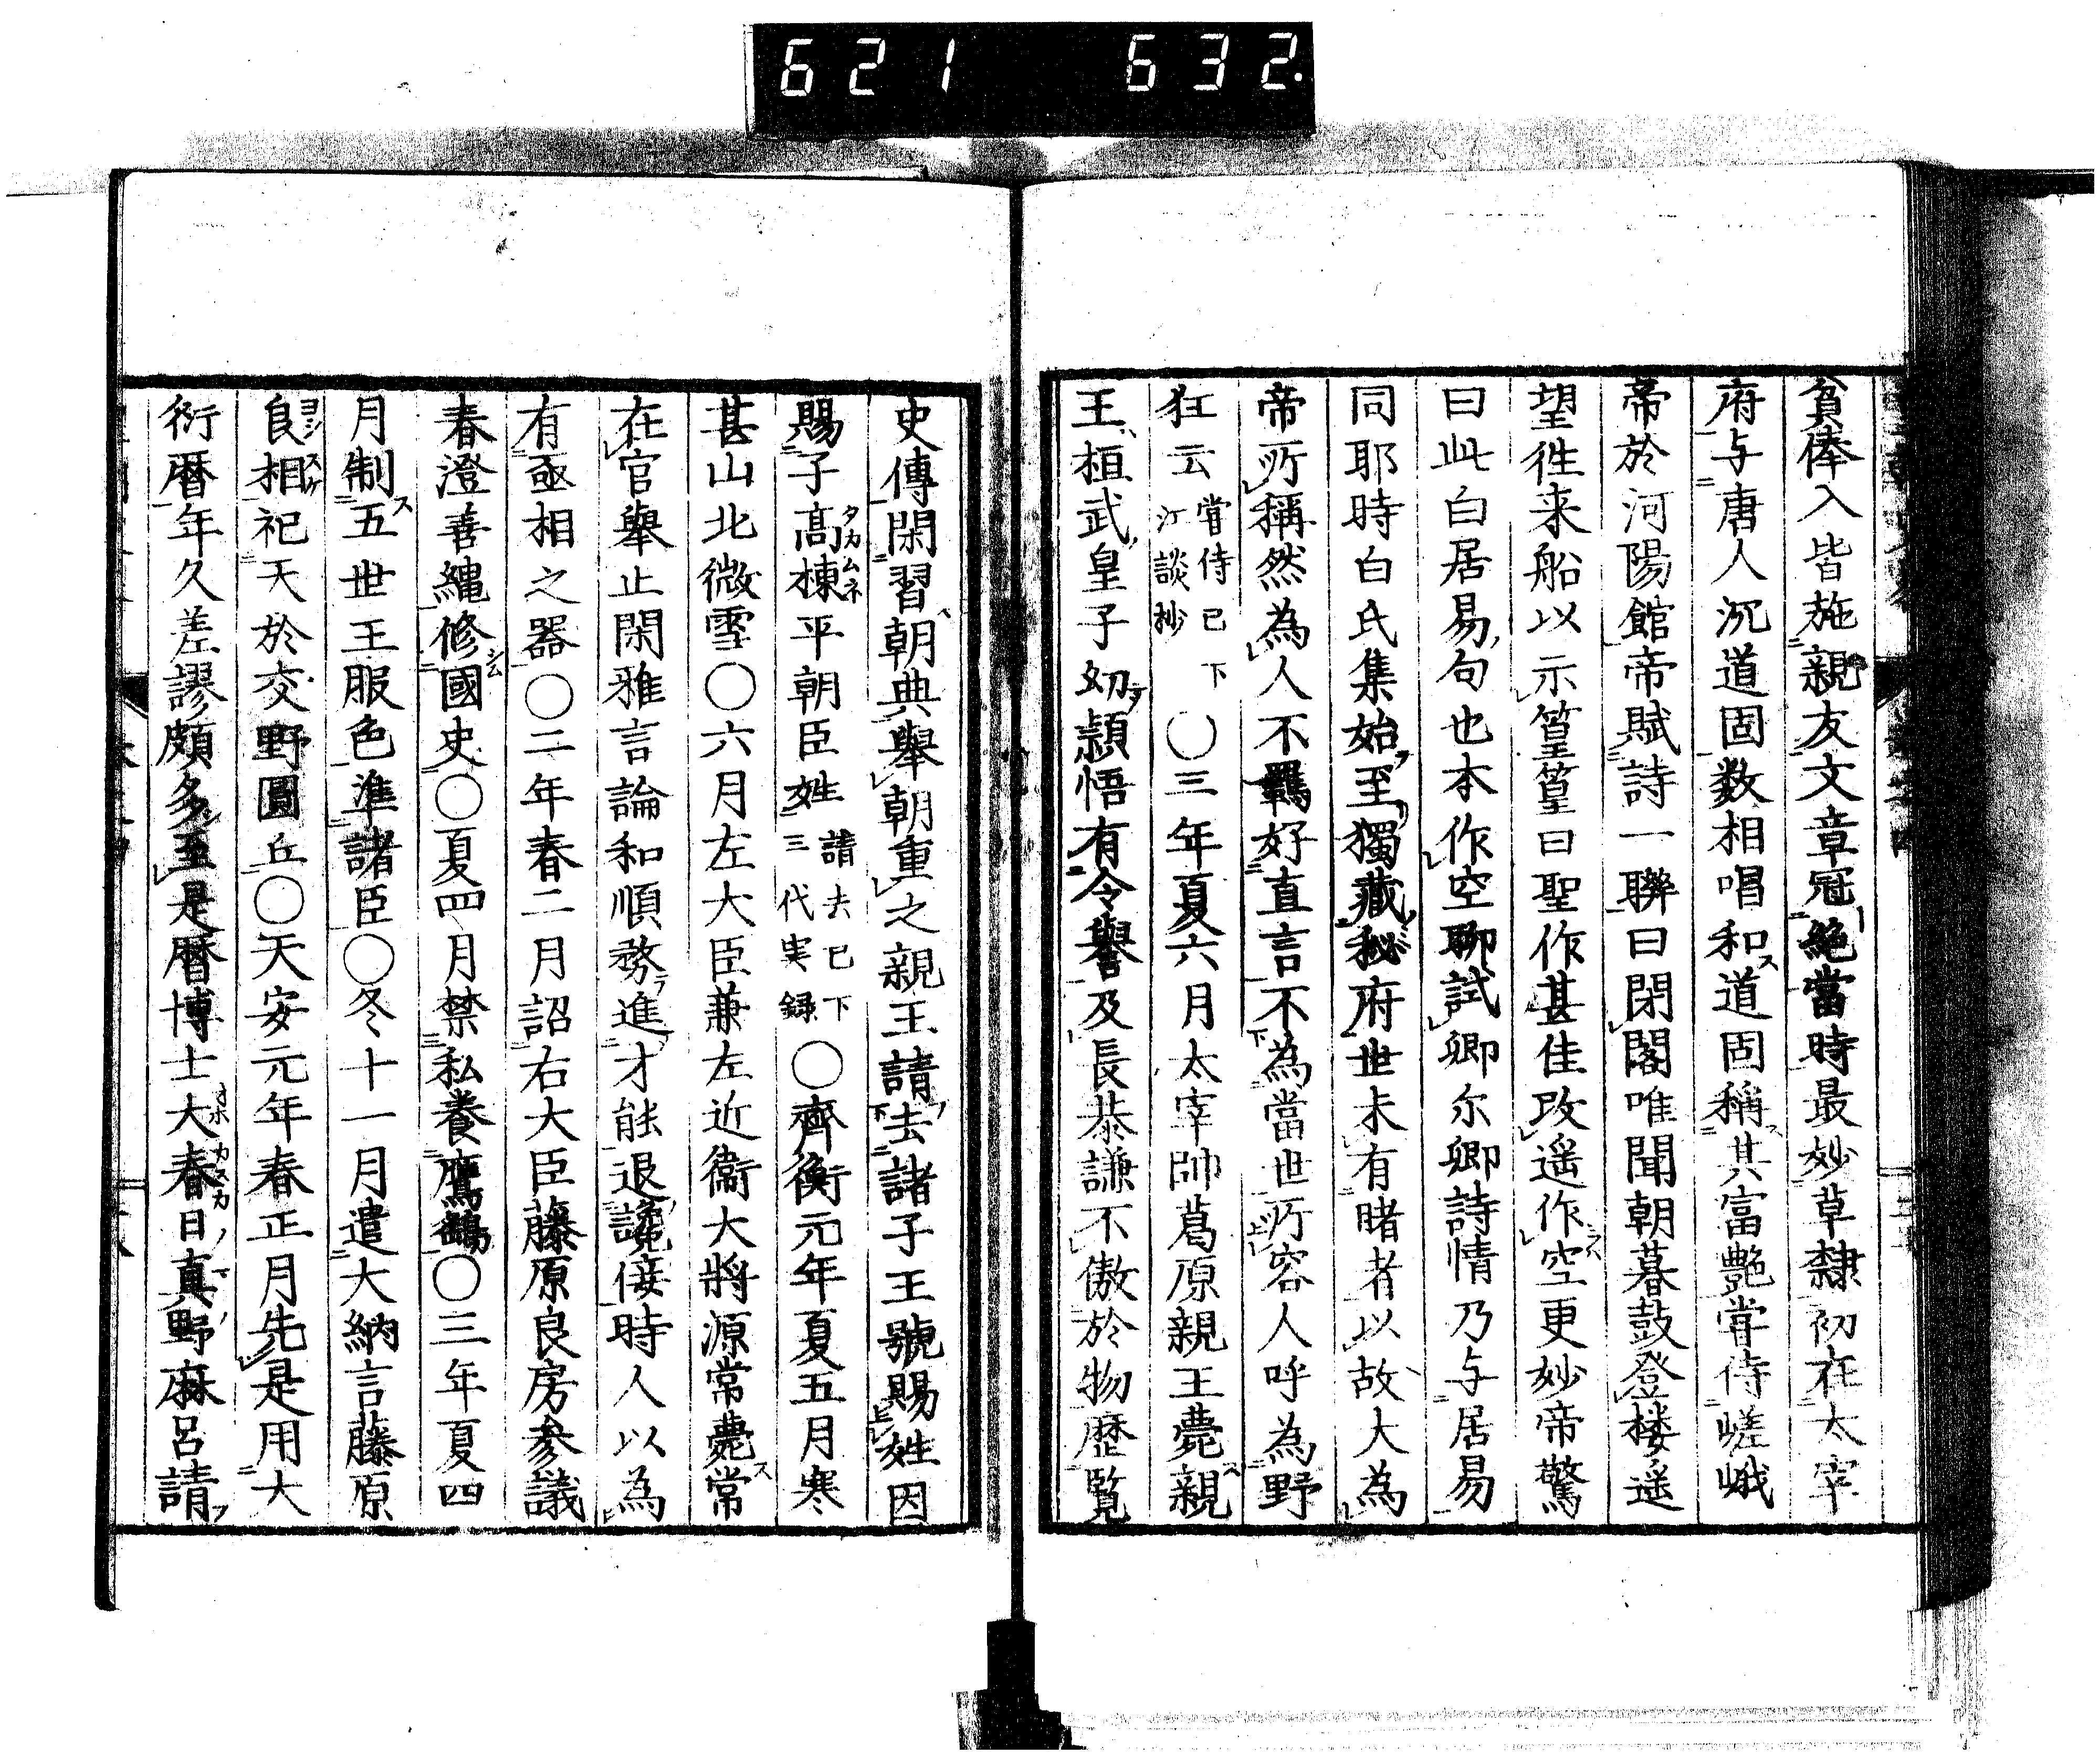 621 632.
貧俸入皆施親友文章冠絶當時最妙草隷初在太宰
府与唐人沉道固数相唱和道固稱其富艶甞侍嵯峨
帝於河陽館帝賦詩一聯曰閉閣唯聞朝暮鼓登楼遥
望徃来船以示篁篁曰聖作甚佳改遥作空更妙帝驚
曰此白居易句也本作空聊試卿尓卿詩情乃与居易
同耶時白氏集始至獨藏秘府世未有睹者以故大為
帝所稱然為人不羈好直言不為當世所容人呼為野
狂云甞侍已下江談抄〇三年夏六月太宰帥葛原親王薨親
王桓武皇子幼頴悟有令譽及長恭謙不傲於物歴覧
史傳閑習朝典舉朝重之親王請去諸子王號賜姓因
賜子高棟平朝臣姓請去已下三代実録〇齊衡元年夏五月寒
甚山北微雪〇六月左大臣兼左近衞大將源常薨常
在官舉止閑雅言論和順務進才能退讒佞時人以為
有亟相之器〇二年春二月詔右大臣藤原良房参議
春澄善縄修國史〇夏四月禁私養鷹鷂〇三年夏四
月制五世王服色準諸臣〇冬十一月遣大納言藤原
良相祀天於交野圓丘〇天安元年春正月先是用大
衍暦年久差謬頗多至是暦博士大春日真野麻呂請